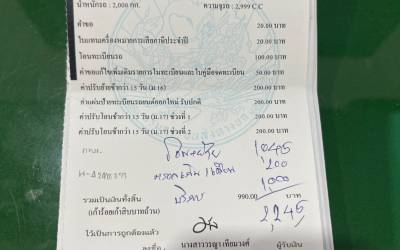 น้ำหนักรถ : 2,000 กก. ความจุรถ : 2,999 C.C
ค่าขอ 20.00 บาท
ใบแทนเครื่องหมายการเสียภาษีประจำปี 20.00 บาท
โอนทะเบียนรถ 100.00 บาท
ค่าขอแก้ไขเพิ่มเติมรายการในทะเบียนและใบคู่มือจดทะเบียน 50.00 บาท
ค่าปรับย้ายช้ากว่า 15 วัน (ม.16) 200.00 บาท
ค่าแผ่นป้ายทะเบียนรถยนต์ออกใหม่ รับปกติ 200.00 บาท
ค่าปรับโอนช้ากว่า 15 วัน (ม.17) ช่วงที่ 1 200.00 บาท
ค่าปรับโอนช้ากว่า 15 วัน (ม.17) ช่วงที่ 2 200.00 บาท
1,045
200
1,000
รวมเป็นเงินทั้งสิ้น 990.00 บาท
(เก้าร้อยเก้าสิบบาทถ้วน) 2,245
ไว้เป็นการถูกต้องแล้ว
ผู้รับเงิน